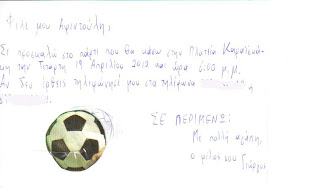 Φίλε μου Αφεντούλη,
Σε προσκαλώ στο πάρτι που θα κάνω στην Πλατεία Καραϊσκά-
κη την Τετάρτη 19 Απριλίου 2012 και ώρα 6:00 μ.μ.
Αν δεν έρθεις τηλεφώνησέ μου στα τηλέφωνα ή
ΣΕ ΠΕΡΙΜΕΝΩ!
Με πολλή αγάπη,
ο φίλος σου Γιώργος